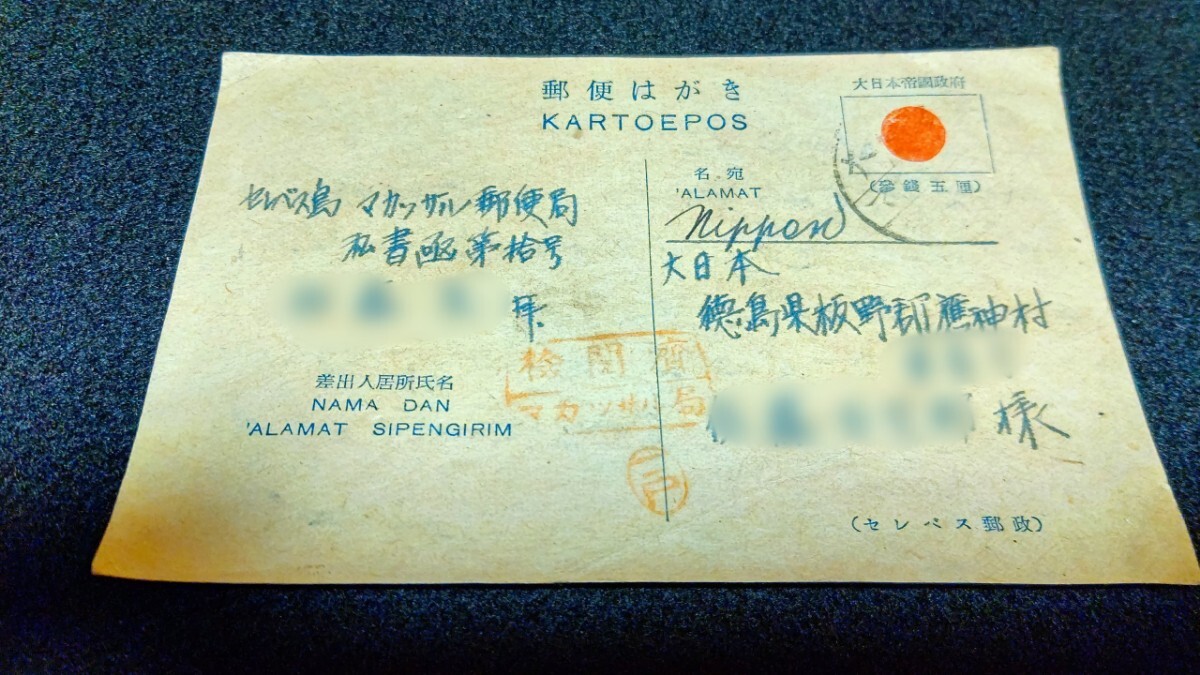 郵便はがき
KARTOEPOS
大日本帝國政府
(参錢五厘)
名宛
'ALAMAT
Nippon
大日本
徳島県板野郡應神村
様
セレベス島 マカッサル郵便局
私書函第拾号
差出人居所氏名
NAMA DAN
'ALAMAT SIPENGIRIM
検閲濟
マカッサル局
(セレベス郵政)